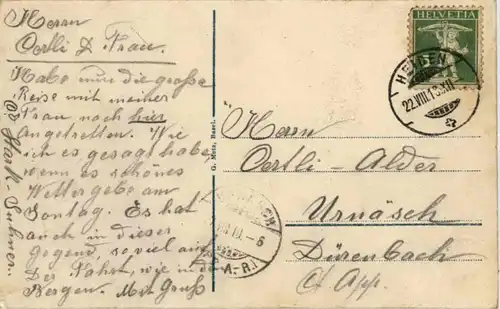 Herrn
Oertli & Frau.
Habe nun die große
Reise mit meiner
Frau nach hier
angetretten. Wie
ich es gesagt habe
wenn es schönes
Wetter gebe am
Sontag. Es hat
auch in dieser
gegend, so viel auf
Der Fahrt, wie in de
Bergen. Mit Gruß
G. Metz, Basel.
HELVETIA
5
HEIDEN
22.VIII.13.XII
Herrn
Oertli-Alder
Urnäsch
Dürenbach
Ct. App.